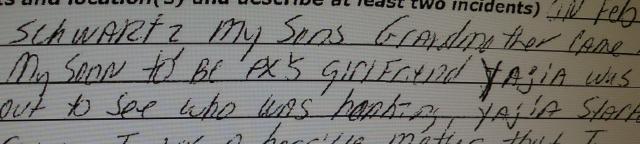 and location(s) and describe at least two incidents) IN Feb
SCHWARTZ My Sons GRANDMother CAME
My Soon to BE EX'S Girl Friend YAJIA WAS
out to See who WAS honking, YAJIA Start